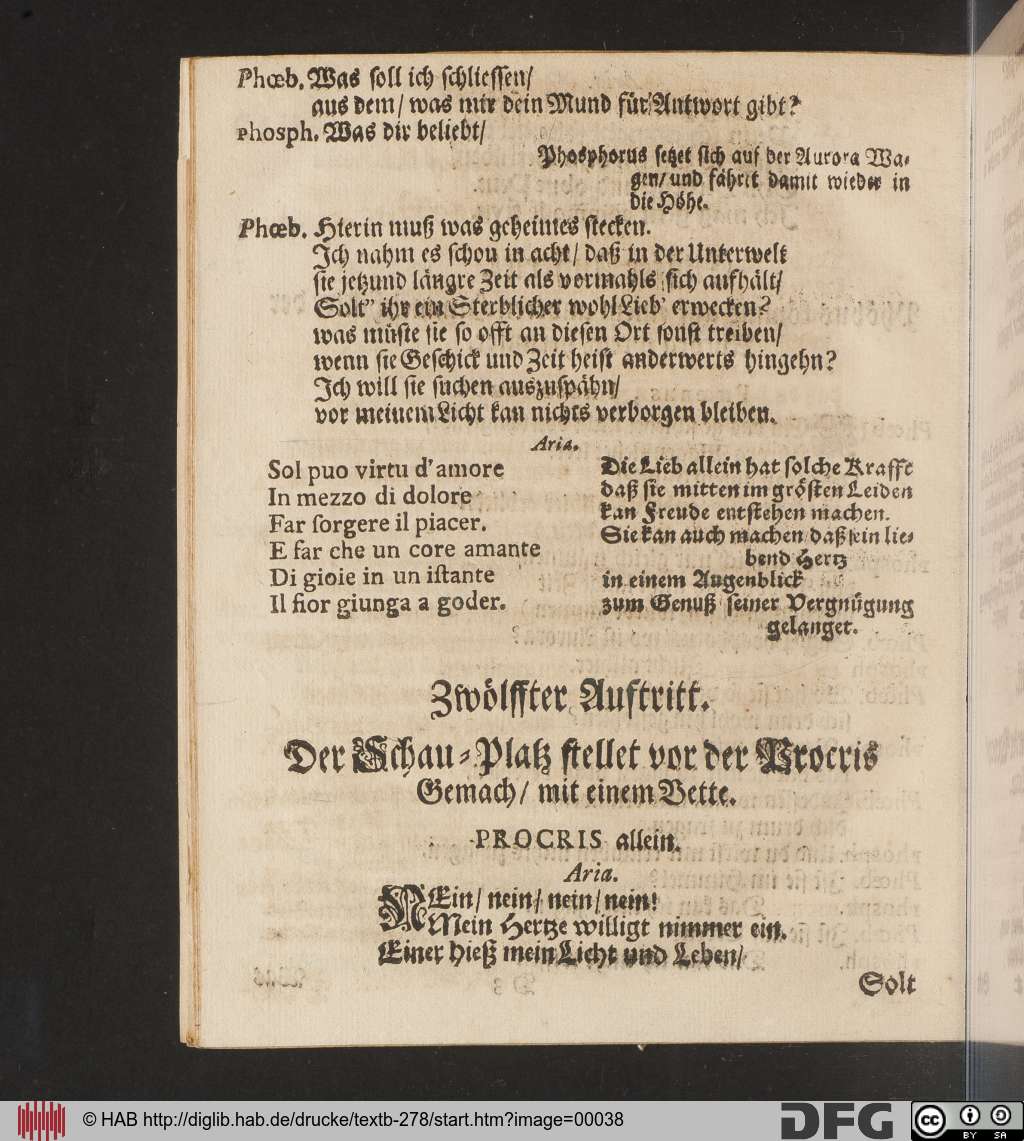 Phœb. Was soll ich schliessen/
aus dem/ was mir dein Mund für Antwort gibt?
Phosph. Was dir beliebt/
Phosphorus setzet sich auf der Aurora Wa-
gen/ und fährt damit wieder in
die Höhe.
Phœb. Hierin muß was geheimes stecken.
Ich nahm es schon in acht/ daß in der Unterwelt
sie jetzund längre Zeit als vormahls sich aufhält/
Solt’’ ihr ein Sterblicher wohl Lieb’ erwecken?
was müste sie so offt an diesen Ort sonst treiben/
wenn sie Geschick und Zeit heist anderwerts hingehn?
Ich will sie suchen auszuspähn/
vor meinem Licht kan nichts verborgen bleiben.
Aria.
Sol puo virtu d’amore
In mezzo di dolore
Far ſorgere il piacer.
E far che un core amante
Di gioie in un iſtante
Il fior giunga a goder.
Die Lieb allein hat solche Krafft
daß sie mitten im grösten Leiden
kan Freude entstehen machen.
Sie kan auch machen daß ein lie-
bend Hertz
in einem Augenblick
zum Genuß seiner Vergnügung
gelanget.
Zwölffter Auftritt.
Der Schau-Platz stellet vor der Procris
Gemach/ mit einem Bette.
PROCRIS allein.
Aria.
NEin/ nein/ nein/ nein!
Mein Hertze willigt nimmer ein.
Einer hieß mein Licht und Leben/
Solt
© HAB http://diglib.hab.de/drucke/textb-278/start.htm?image=00038
DFG
cc BY SA